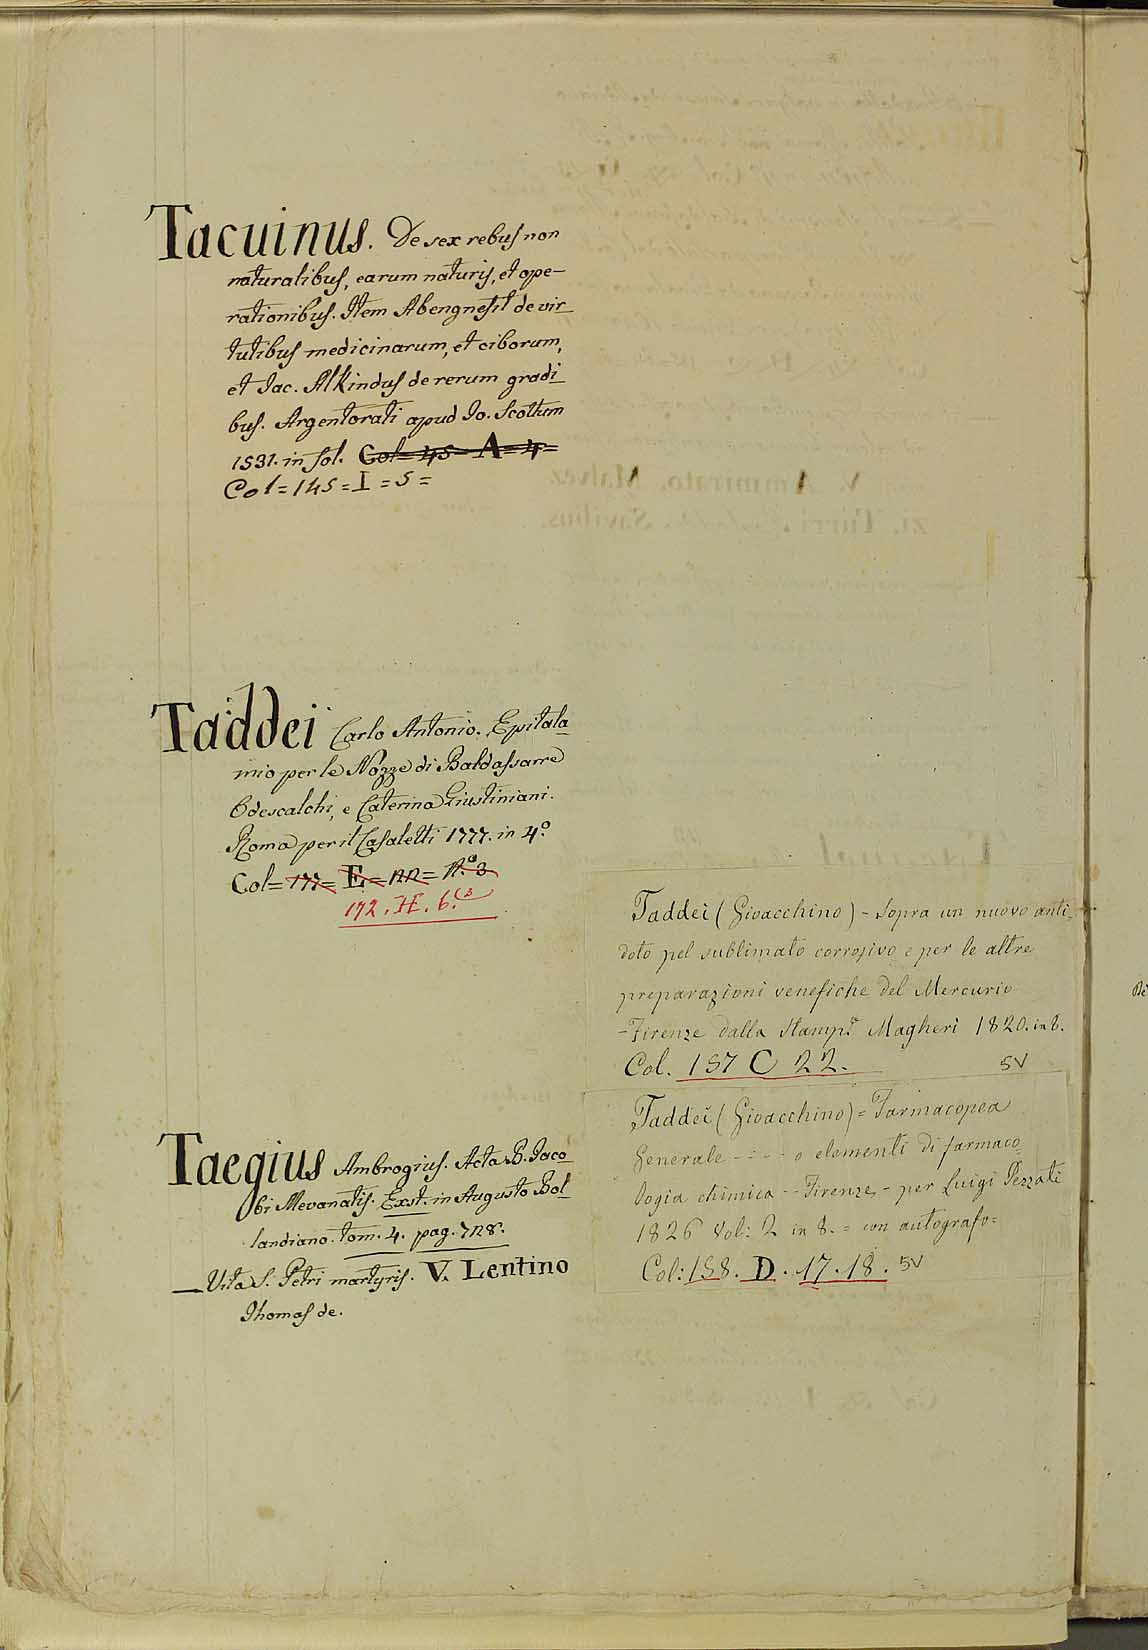 Tacuinus. De sex rebus non
naturalibus, earum naturis, et ope-
rationibus. Item Abengnefit de vir
tutibus medicinarum, et ciborum,
et Iac. Alkindus de rerum gradi
bus. Argentorati apud Io. Scottum
1531. in fol. Col= 45= A= 4=
Col= 145= I = 5=
Taddei Carlo Antonio. Epitala
mio per le Nozze di Baldassarre
Odescalchi, e Caterina Giustiniani.
Roma per il Casaletti 1777. in 4.º
Col= 177= E= = N.º 3
172. H. 6.
Taegius Ambrogius. Acta B. Iaco
bi Mevanatis. Exst. in Augusto Bol
landiano. tom. 4. pag. 728.
— Vita S. Petri martyris. V. Lentino
Thomas de.
Taddei (Gioacchino) - Sopra un nuovo anti=
doto pel sublimato corrosivo e per le altre
preparazioni venefiche del Mercurio
-Firenze dalla Stamp.ª Magheri 1820. in 8.
Col. 157 C 22. SV
Taddei (Gioacchino) = Farmacopea
Generale - - - - o elementi di farmaco=
logia chimica -- Firenze - per Luigi Pezzati
1826 Vol: 2 in 8. = con autografo=
Col: 158. D. 17. 18. SV